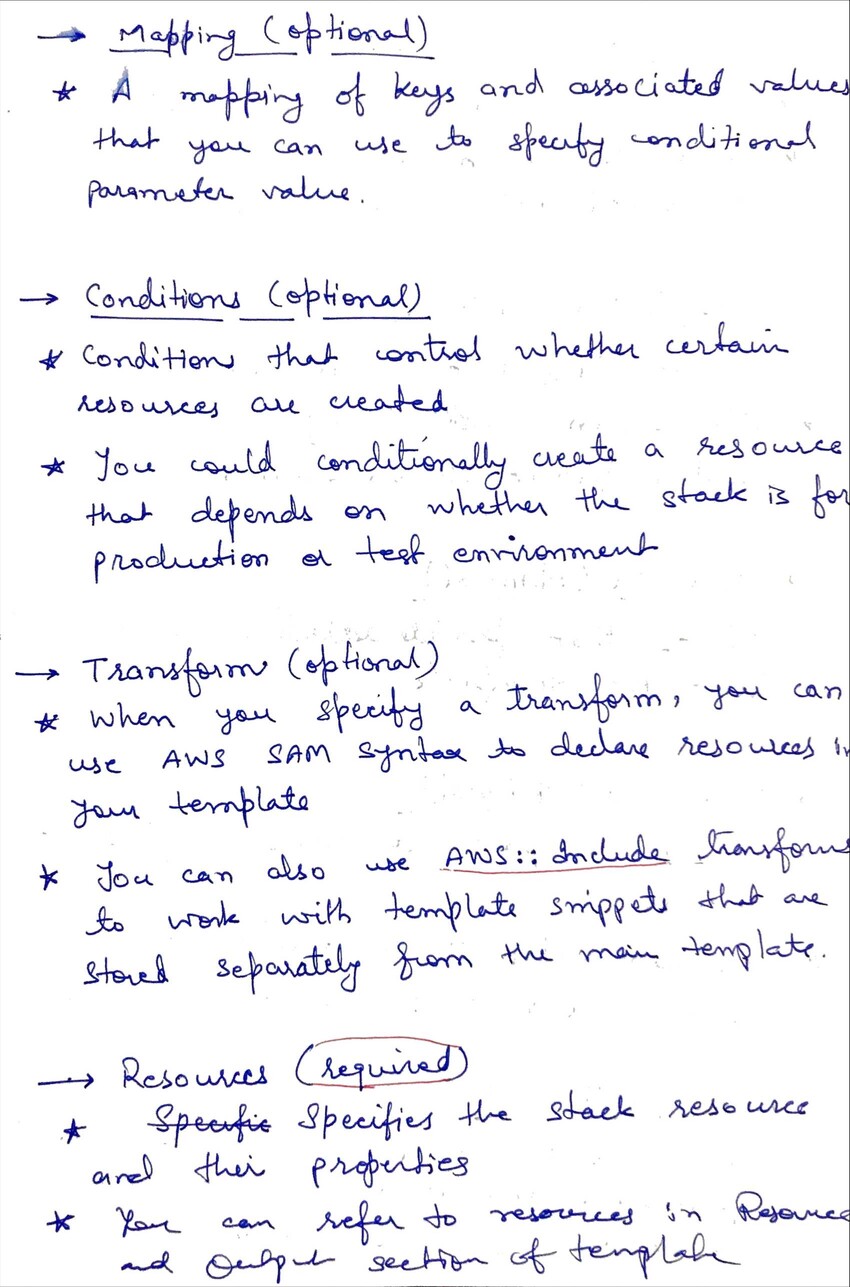 → Mapping (optional)
* A mapping of keys and associated values
that you can use to specify conditional
parameter value.
→ Conditions (optional)
* Conditions that control whether certain
resources are created
* You could conditionally create a resource
that depends on whether the stack is for
production or test environment
→ Transform (optional)
* When you specify a transform, you can
use AWS SAM Syntax to declare resources in
your template
* You can also use AWS::Include transforms
to work with template snippets that are
stored separately from the main template.
→ Resources (required)
* Specific Specifies the stack resource
and their properties
* You can refer to resources in Resource
and Output section of template